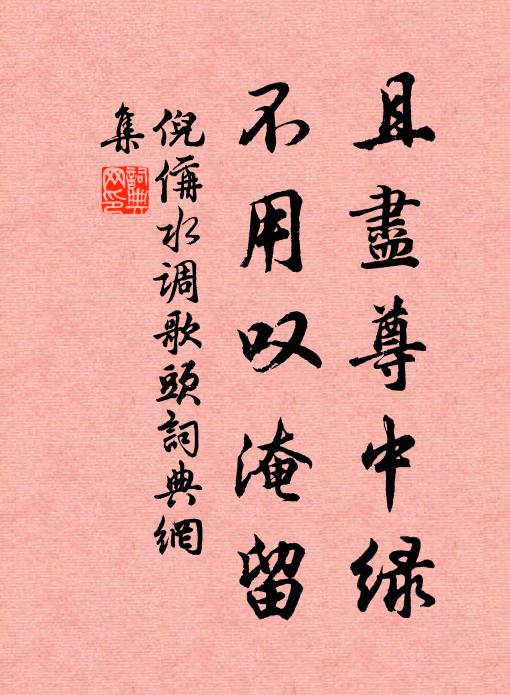 且盡尊中绿
不用叹淹留
倪偁水调歌頭詞典網
集
詞典
网印